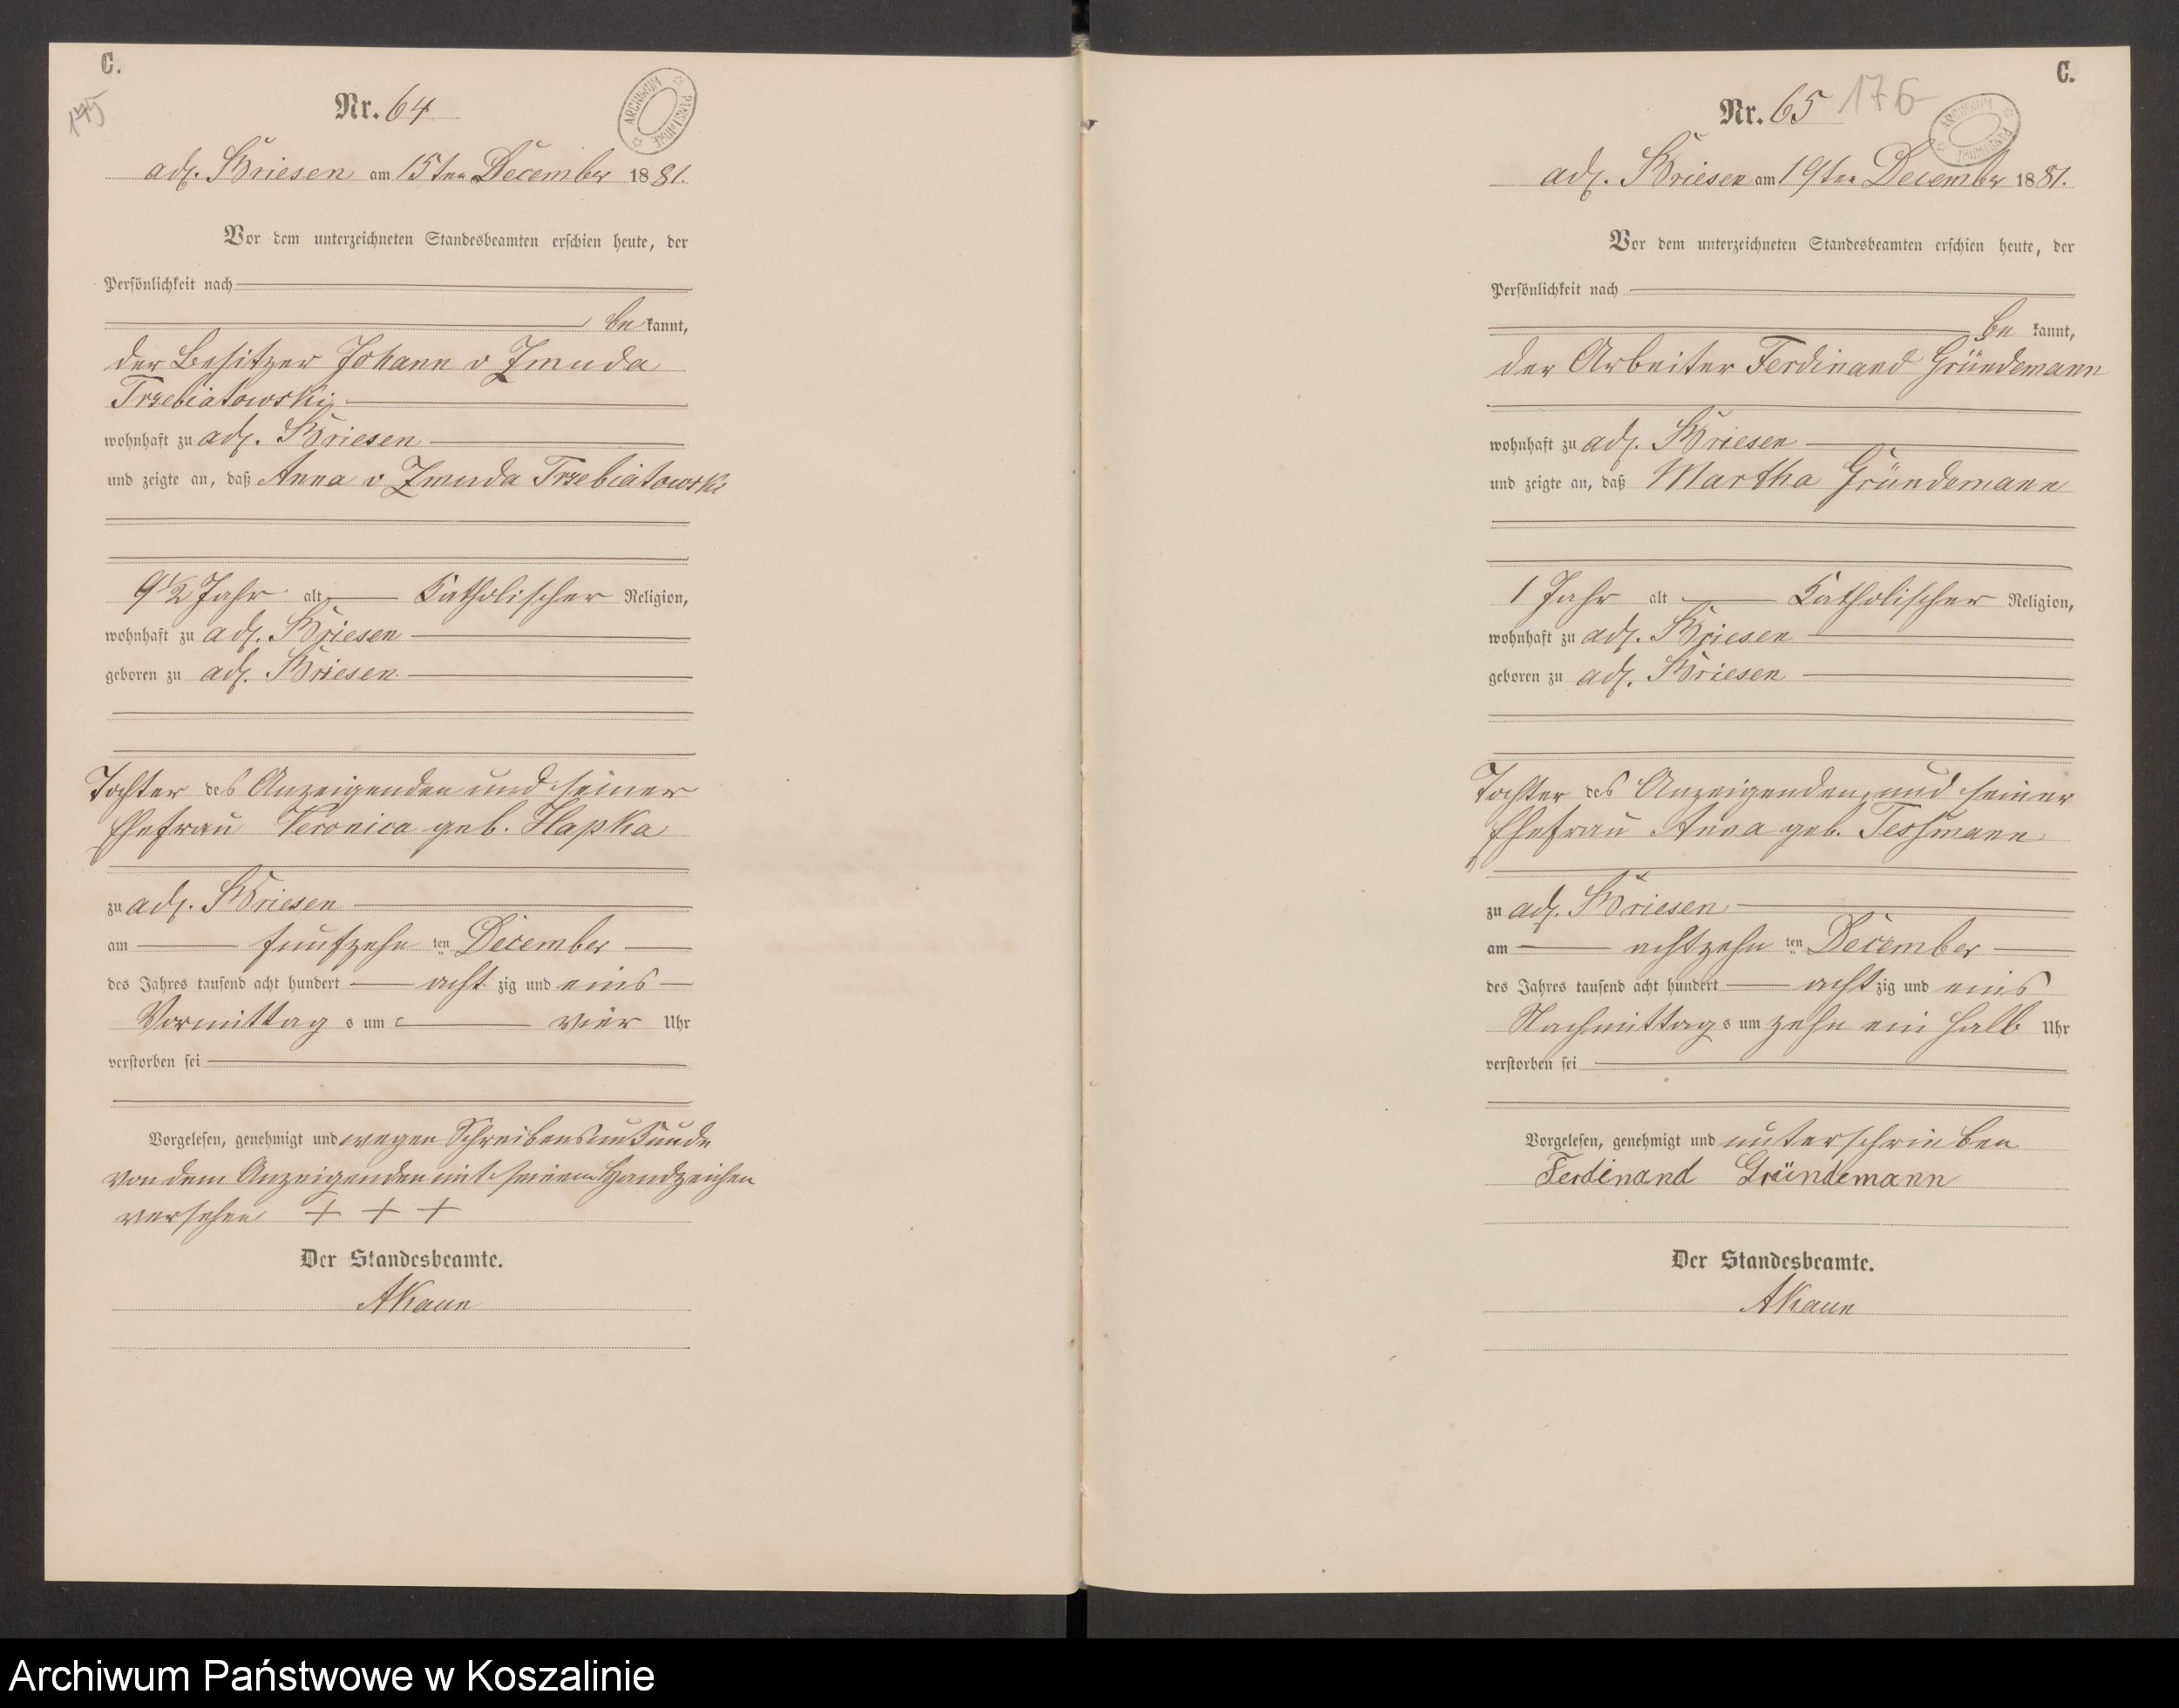 C.
175
Nr. 64
ARCHIWUM PAŃSTWOWE
adl. Briesen am 15ten December 1881.
Vor dem unterzeichneten Standesbeamten erschien heute, der
Persönlichkeit nach
be kannt,
der Besitzer Johann v Zmuda
Trzebiatowski
wohnhaft zu adl. Briesen
und zeigte an, daß Anna v Zmuda Trzebiatowski
9½ Jahr alt Katholischer Religion,
wohnhaft zu adl. Briesen
geboren zu adl. Briesen
Tochter des Anzeigenden und seiner
Ehefrau Veronica geb. Hapka
zu adl. Briesen
am funfzehn ten December
des Jahres tausend acht hundert acht zig und eins
Vormittag s um vier Uhr
verstorben sei
Vorgelesen, genehmigt und wegen Schreibensunkunde
von dem Anzeigenden mit seinem Handzeichen
versehen + + +
Der Standesbeamte.
AKaun
C.
Nr. 65 176
ARCHIWUM PAŃSTWOWE
adl. Briesen am 19ten December 1881.
Vor dem unterzeichneten Standesbeamten erschien heute, der
Persönlichkeit nach
be kannt,
der Arbeiter Ferdinand Gründemann
wohnhaft zu adl. Briesen
und zeigte an, daß Martha Gründemann
1 Jahr alt Katholischer Religion,
wohnhaft zu adl. Briesen
geboren zu adl. Briesen
Tochter des Anzeigenden und seiner
Ehefrau Anna geb. Tessmann
zu adl. Briesen
am achtzehn ten December
des Jahres tausend acht hundert acht zig und eins
Nachmittag s um zehn ein halb Uhr
verstorben sei
Vorgelesen, genehmigt und unterschrieben
Ferdinand Gründemann
Der Standesbeamte.
AKaun
Archiwum Państwowe w Koszalinie